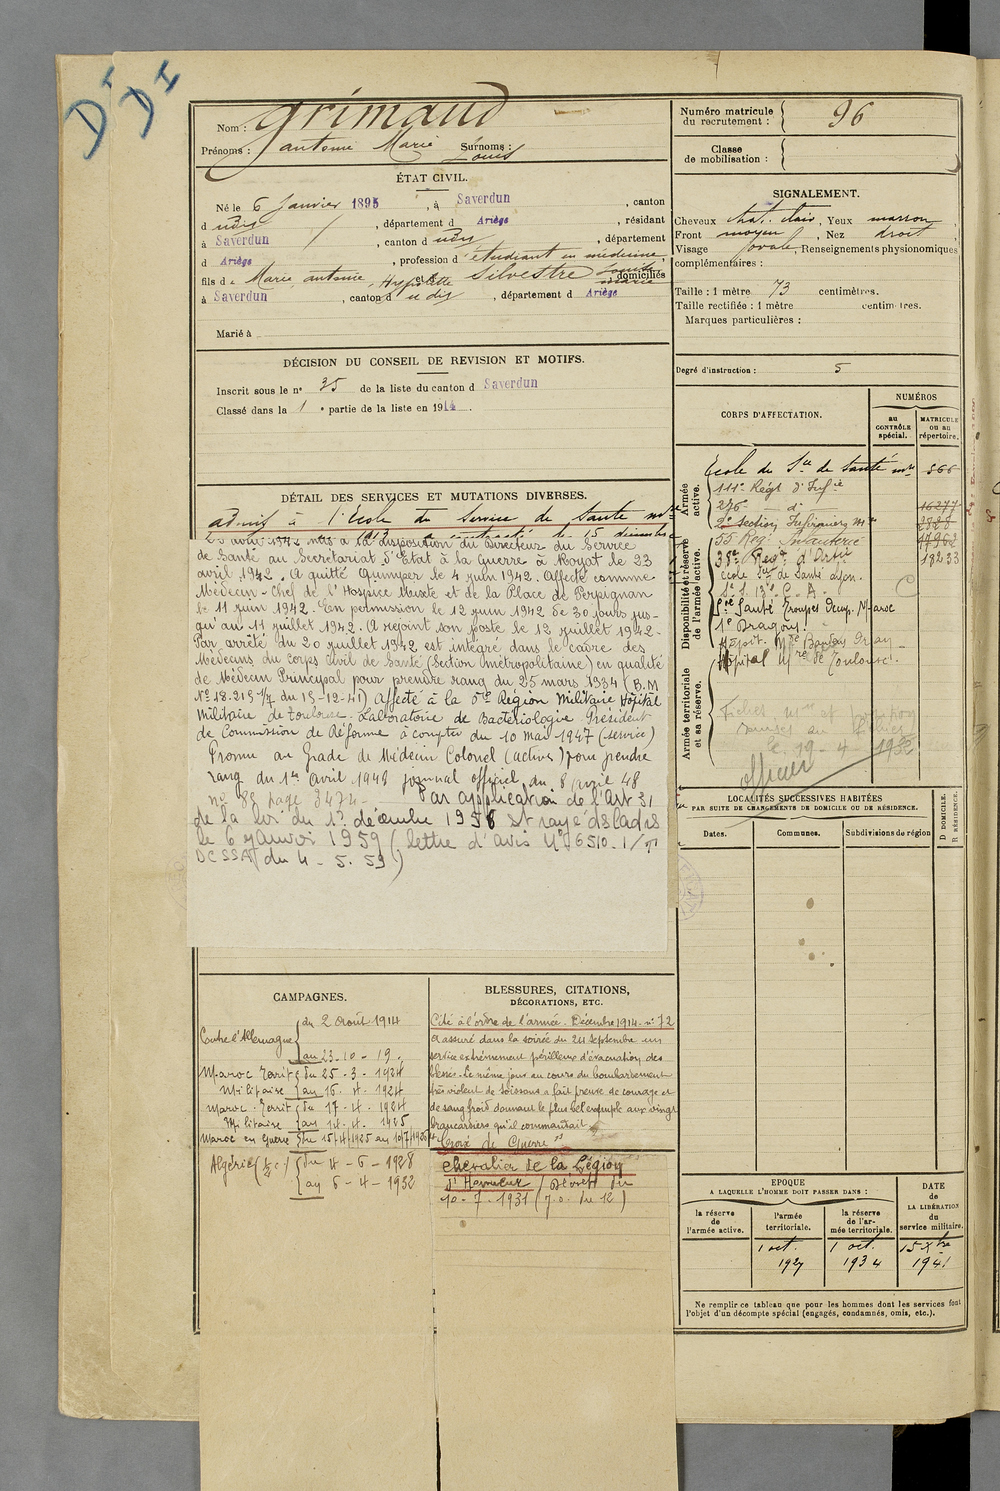 DI
DI
Nom : Grimaud
Prénoms : Antonin Marie Surnoms :
Louis
ÉTAT CIVIL.
Né le 6 Janvier 1895, à Saverdun, canton
d udis, département d Ariège, résidant
à Saverdun, canton d udis, département
d Ariège, profession d'étudiant en médecine,
fils de Marie Antoine, Hypolitte et de Silvestre Louise Marie domiciliés
à Saverdun, canton d udis, département d Ariège
Marié à
DÉCISION DU CONSEIL DE REVISION ET MOTIFS.
Inscrit sous le n° 35 de la liste du canton d Saverdun
Classé dans la 1e partie de la liste en 1914.
DÉTAIL DES SERVICES ET MUTATIONS DIVERSES.
Admis à l'Ecole du Service de Santé mre
25 août 1942 mis à la disposition du Directeur du Service
de Santé au Secrétariat d'Etat à la Guerre à Royat le 23
avril 1942. A quitté Quimper le 4 juin 1942. Affecté comme
Médecin-Chef de l'Hospice Mixte et de la Place de Perpignan
le 11 juin 1942. En permission le 12 juin 1942 de 30 jours jus-
qu'au 11 juillet 1942. A rejoint son poste le 12 juillet 1942-
Par arrêté du 20 juillet 1942 est intégré dans le cadre des
Médecins du corps civil de Santé (Section métropolitaine) en qualité
de Médecin Principal pour prendre rang du 25 mars 1934 (B.M
N° 18.215-1/7 du 19-12-41) Affecté à la 5e Région Militaire Hôpital
Militaire de Toulouse-Laboratoire de Bactériologie Président
de Commission de Réforme à compter du 10 mai 1947 (service)
Promu au Grade de Médecin Colonel (active) pour prendre
rang du 1er avril 1948 journal officiel du 8 avril 48
n° 85 page 3474. Par application de l'Art 31
de la loi du 1° décembre 1956 est rayé des Cadres
le 6 janvier 1959 (lettre d'avis N° 6510.1/T
DCSSA du 4-5.59)
CAMPAGNES.
Contre l'Allemagne { du 2 Août 1914
au 23-10-19.
Maroc Territ { du 25-3-1924
Militaire { au 16.4.1924
Maroc-Territ { du 17-4.1924
Militaire { au 14.4.1925
Maroc en Guerre { du 15/4/1925 au 10/7/1925
Algérie { du 4-6-1928
{ au 6-4-1932
BLESSURES, CITATIONS,
DÉCORATIONS, ETC.
Cité à l'ordre de l'armée. Décembre 1914-n° 72
A assuré dans la soirée du 24 septembre un
service extrêmement périlleux d'évacuation des
blessés. Le même jour au cours du bombardement
très violent de Soissons a fait preuve de courage et
de sang froid donnant le plus bel exemple aux vingt
brancardiers qu'il commandait
"Croix de Guerre"
Chevalier de la Légion
d'Honneur (Décret du
10-7-1931 (J.O. du 12)
Numéro matricule
du recrutement : 96
Classe
de mobilisation :
SIGNALEMENT.
Cheveux chat. clair, Yeux marron
Front moyen, Nez droit,
Visage ovale, Renseignements physionomiques
complémentaires :
Taille : 1 mètre 73 centimètres.
Taille rectifiée : 1 mètre centimètres.
Marques particulières :
Degré d'instruction : 5
CORPS D'AFFECTATION.
NUMÉROS
AU CONTRÔLE spécial.
MATRICULE OU AU répertoire.
Armée active.
Ecole du Sce de Santé mre 566
111e Régt d'Infie
276- d° 16277
2e Section Infirmiers mre 2528
Disponibilité et réserve de l'armée active.
55 Reg. Infanterie
38e Regt d'Artie 18233
Ecole Sce de Santé Lyon.
Sce Santé Troupes Occup. Maroc
1e Dragons.
Hôpital Mre de Toulouse.
Armée territoriale et sa réserve.
le 19-4-1932
officier
LOCALITÉS SUCCESSIVES HABITÉES
PAR SUITE DE CHANGEMENTS DE DOMICILE OU DE RÉSIDENCE.
Dates. Communes. Subdivisions de région
D DOMICILE.
R RÉSIDENCE.
EPOQUE
A LAQUELLE L'HOMME DOIT PASSER DANS :
la réserve de l'armée active.
l'armée territoriale.
la réserve de l'armée territoriale.
DATE de LA LIBÉRATION du service militaire.
1 oct. 1927
1 oct. 1934
15 Xbre 1941
Ne remplir ce tableau que pour les hommes dont les services font
l'objet d'un décompte spécial (engagés, condamnés, omis, etc.).